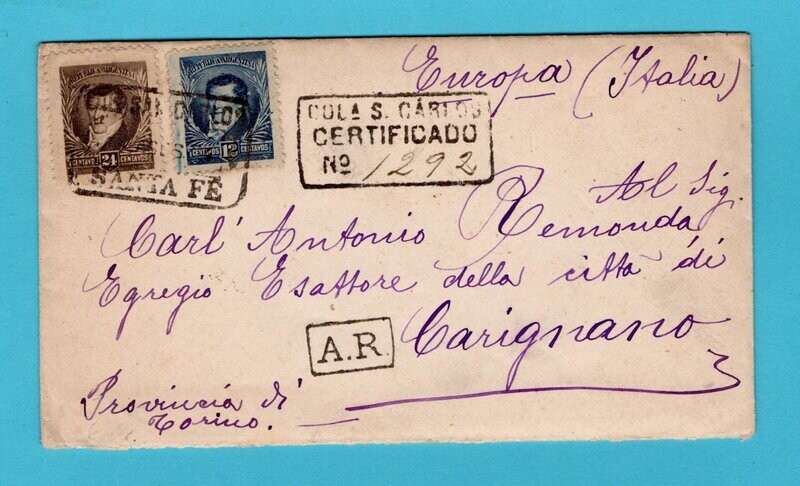 REPUBLICA ARGENTINA
24
CENTAVOS CENTAVOS
REPUBLICA ARGENTINA
12
CENTAVOS CENTAVOS
COLª SAN CARLOS
SANTA FÉ
COLª S. CÁRLOS
CERTIFICADO
Nº 1292
Europa (Italia)
Al Sig.
Carl' Antonio Remonda
Egregio Esattore della città di
Carignano
A.R.
Provincia di
Torino.